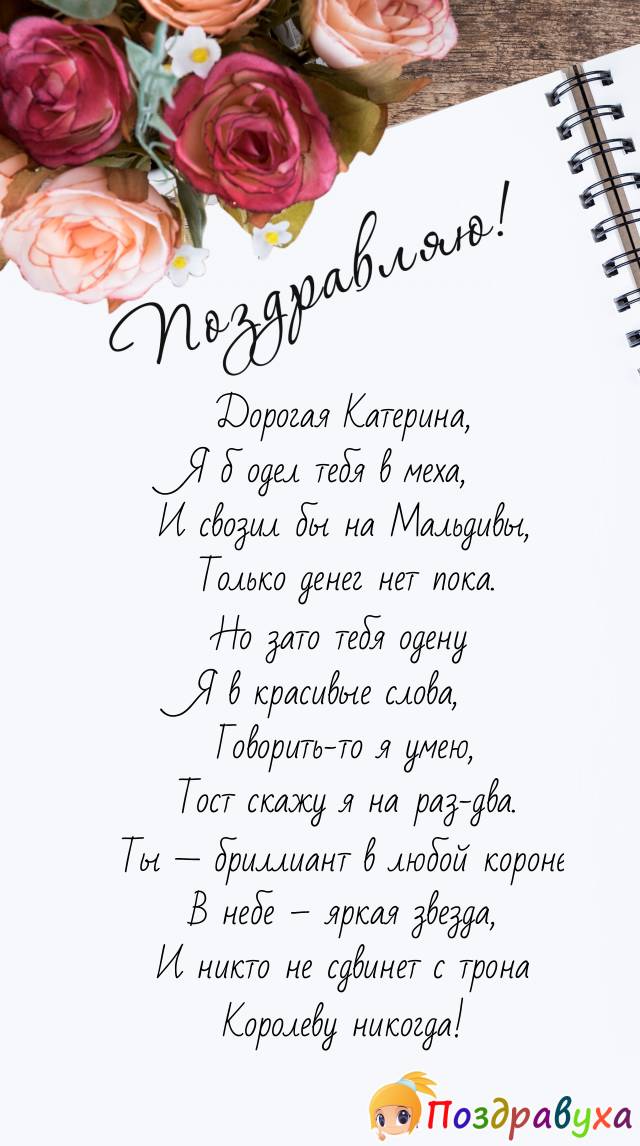 Поздравляю!
Дорогая Катерина,
Я б одел тебя в меха,
И свозил бы на Мальдивы,
Только денег нет пока.
Но зато тебя одену
Я в красивые слова,
Говорить-то я умею,
Тост скажу я на раз-два.
Ты — бриллиант в любой короне
В небе – яркая звезда,
И никто не сдвинет с трона
Королеву никогда!
Поздравуха